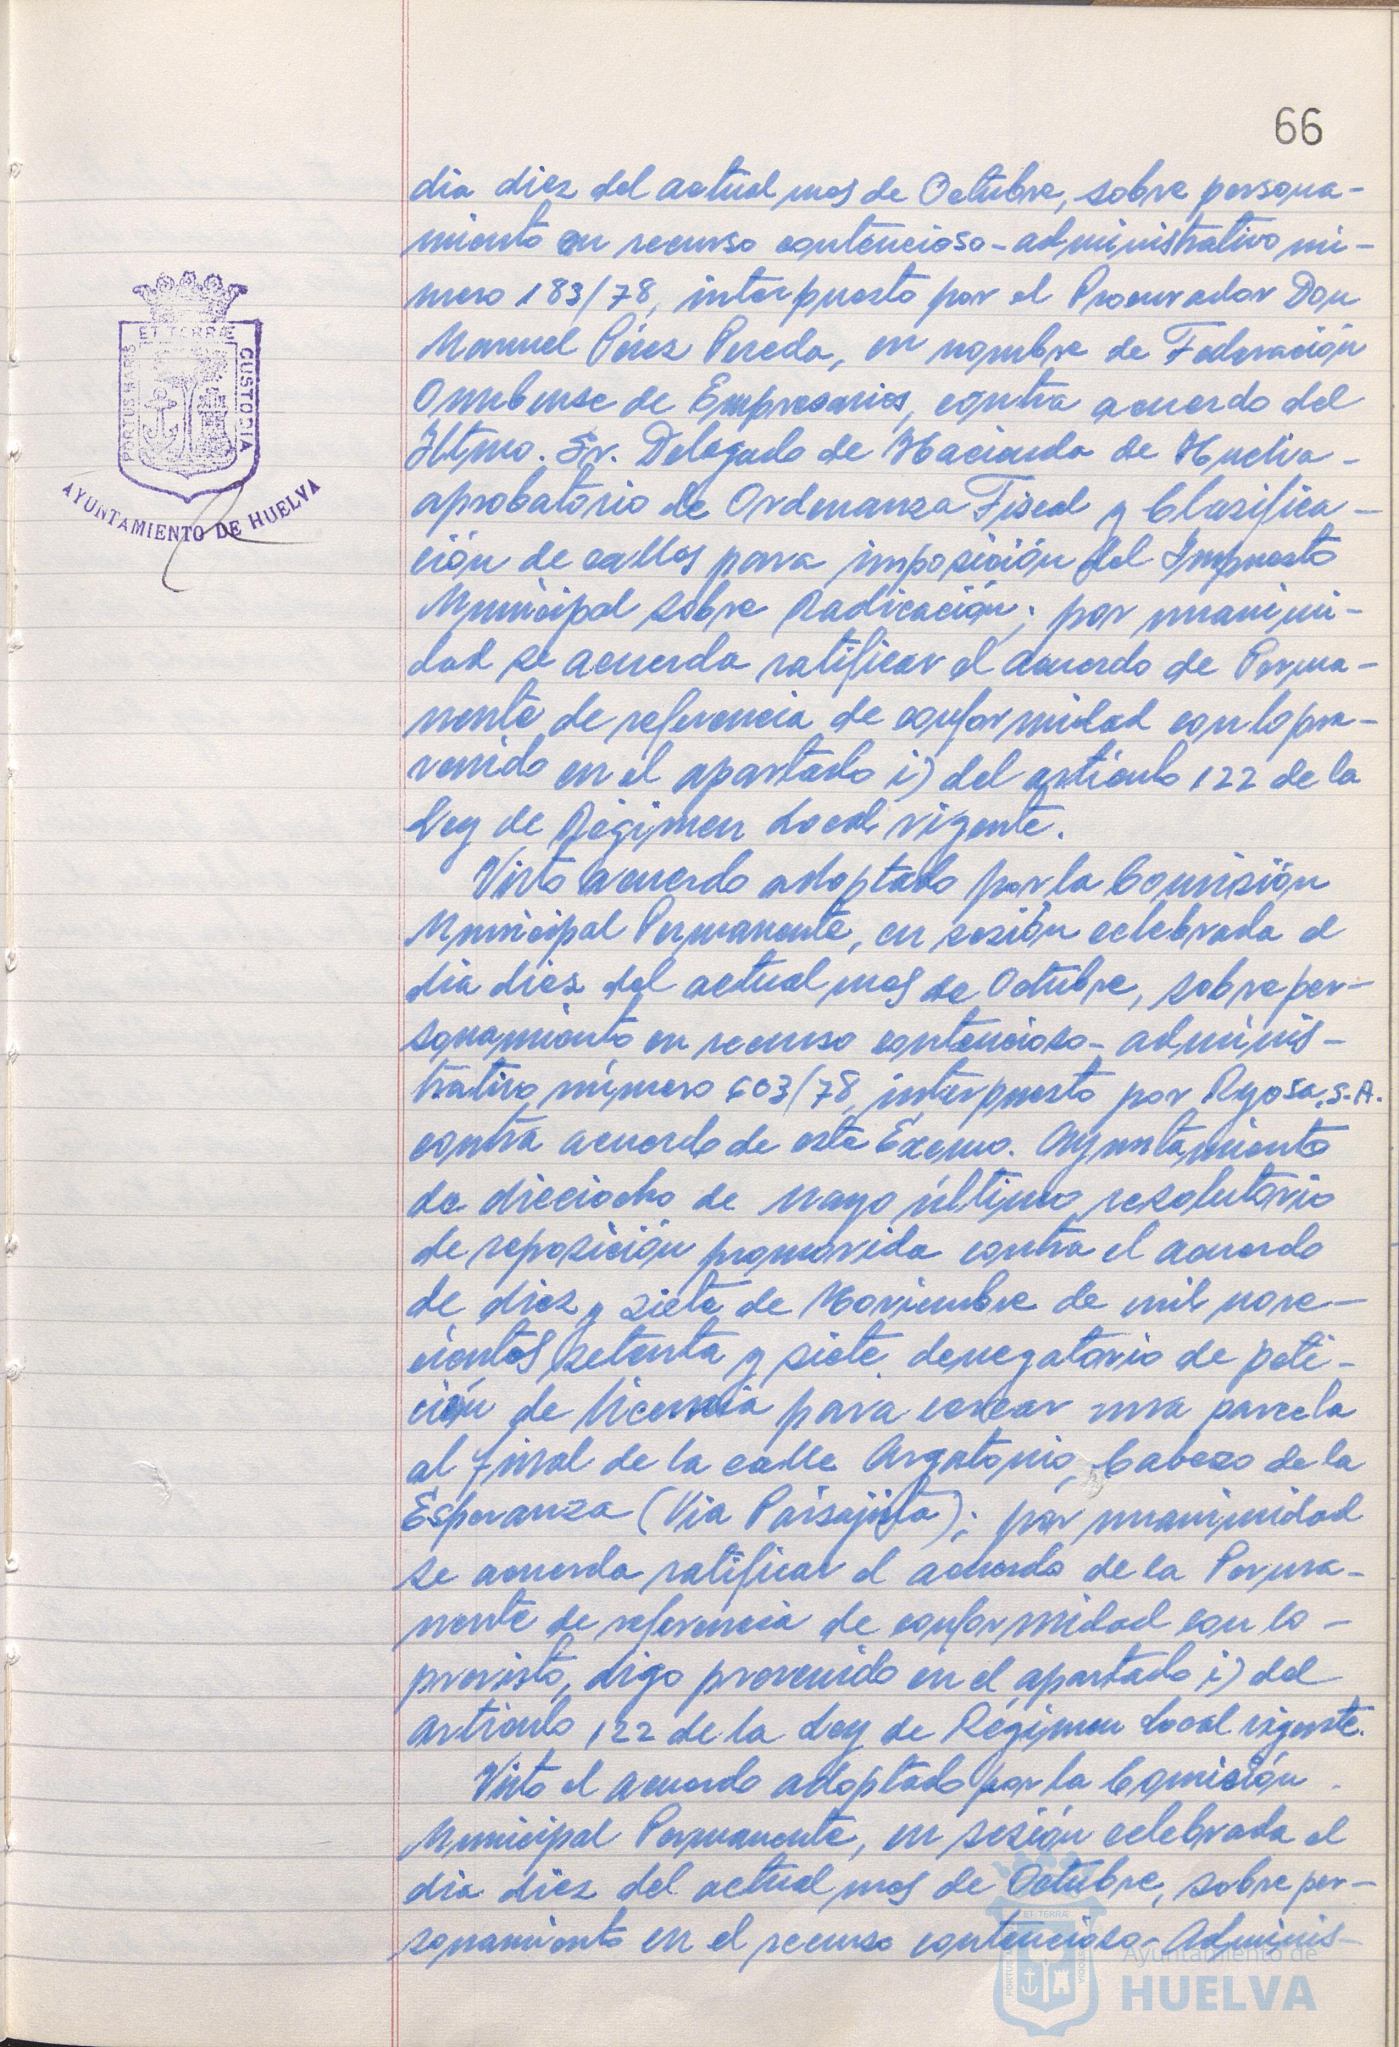 66
dia diez del actual mes de Octubre, sobre persona-
miento en recurso contencioso-administrativo nú-
mero 183/78, interpuesto por el Procurador Don
Manuel Pérez Pereda, en nombre de Federación
Onubense de Empresarios, contra acuerdo del
Iltmo. Sr. Delegado de Hacienda de Huelva-
aprobatorio de Ordenanza Fiscal y Clasifica-
ción de calles para imposición del Impuesto
Municipal sobre Radicación; por unanimi-
dad se acuerda ratificar el acuerdo de Perma-
nente de referencia de conformidad con lo pre-
venido en el apartado i) del artículo 122 de la
Ley de Régimen Local vigente.
Visto acuerdo adoptado por la Comisión
Municipal Permanente, en sesión celebrada el
dia diez del actual mes de Octubre, sobre per-
sonamiento en recurso contencioso-adminis-
trativo número 603/78, interpuesto por Ryosa, S.A.
contra acuerdo de este Excmo. Ayuntamiento
de dieciocho de mayo último, resolutorio
de reposición promovida contra el acuerdo
de diez y siete de Noviembre de mil nove-
cientos setenta y siete denegatorio de peti-
ción de licencia para cercar una parcela
al final de la calle Argatonio, Cabezo de la
Esperanza (Via Paisajista); por unanimidad
se acuerda ratificar el acuerdo de la Perma-
nente de referencia de conformidad con lo-
previsto, digo prevenido en el apartado i) del
artículo 122 de la Ley de Régimen Local vigente.
Visto el acuerdo adoptado por la Comisión
Municipal Permanente, en sesión celebrada el
dia diez del actual mes de Octubre, sobre per-
sonamiento en el recurso contencioso-Adminis-
PORTUS MARIS
ET TERRÆ
CUSTODIA
AYUNTAMIENTO DE HUELVA
PORTUS
ET TERRÆ
Ayuntamiento de
HUELVA